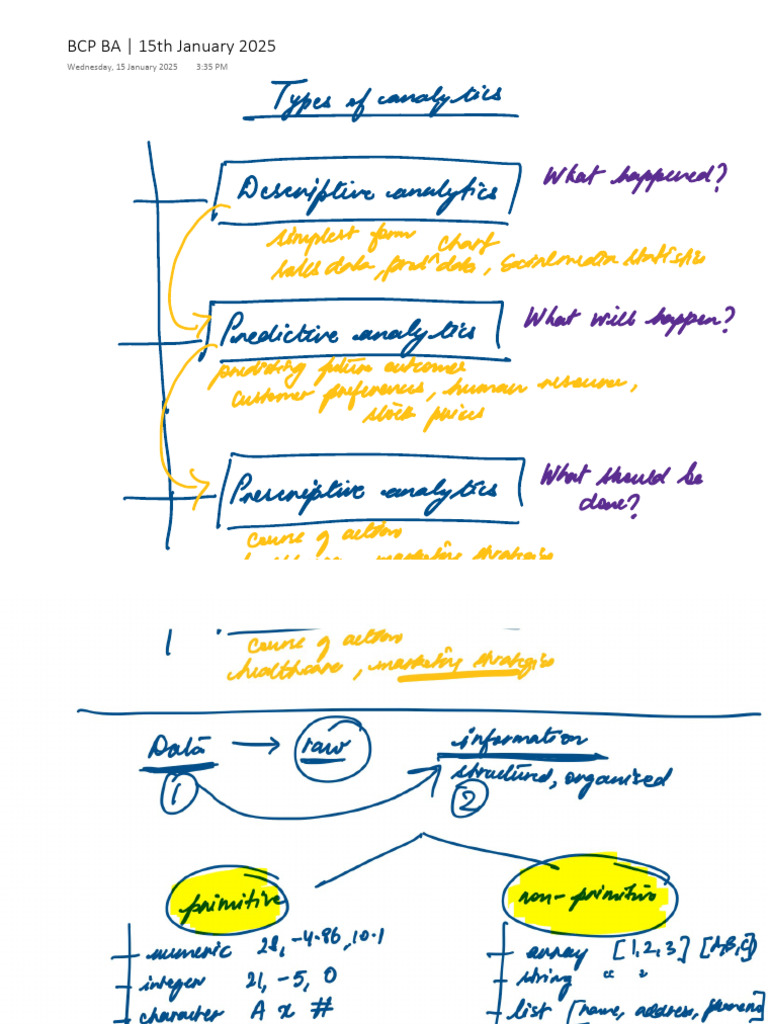 BCP BA | 15th January 2025
Wednesday, 15 January 2025 3:35 PM
Types of analytics
Descriptive analytics What happened?
simplest form chart
sales data, data, social media statistics
Predictive analytics What will happen?
predicting future outcomes
customer preferences, human resource,
stock prices
Prescriptive analytics What should be
done?
course of action
course of action
healthcare, marketing strategies
Data → raw information
structured, organised
1 2
primitive non-primitive
numeric 28, -4.96, 10.1 array [1,2,3] [A,B,C]
integer 21, -5, 0 string " "
character A x # list [name, address,